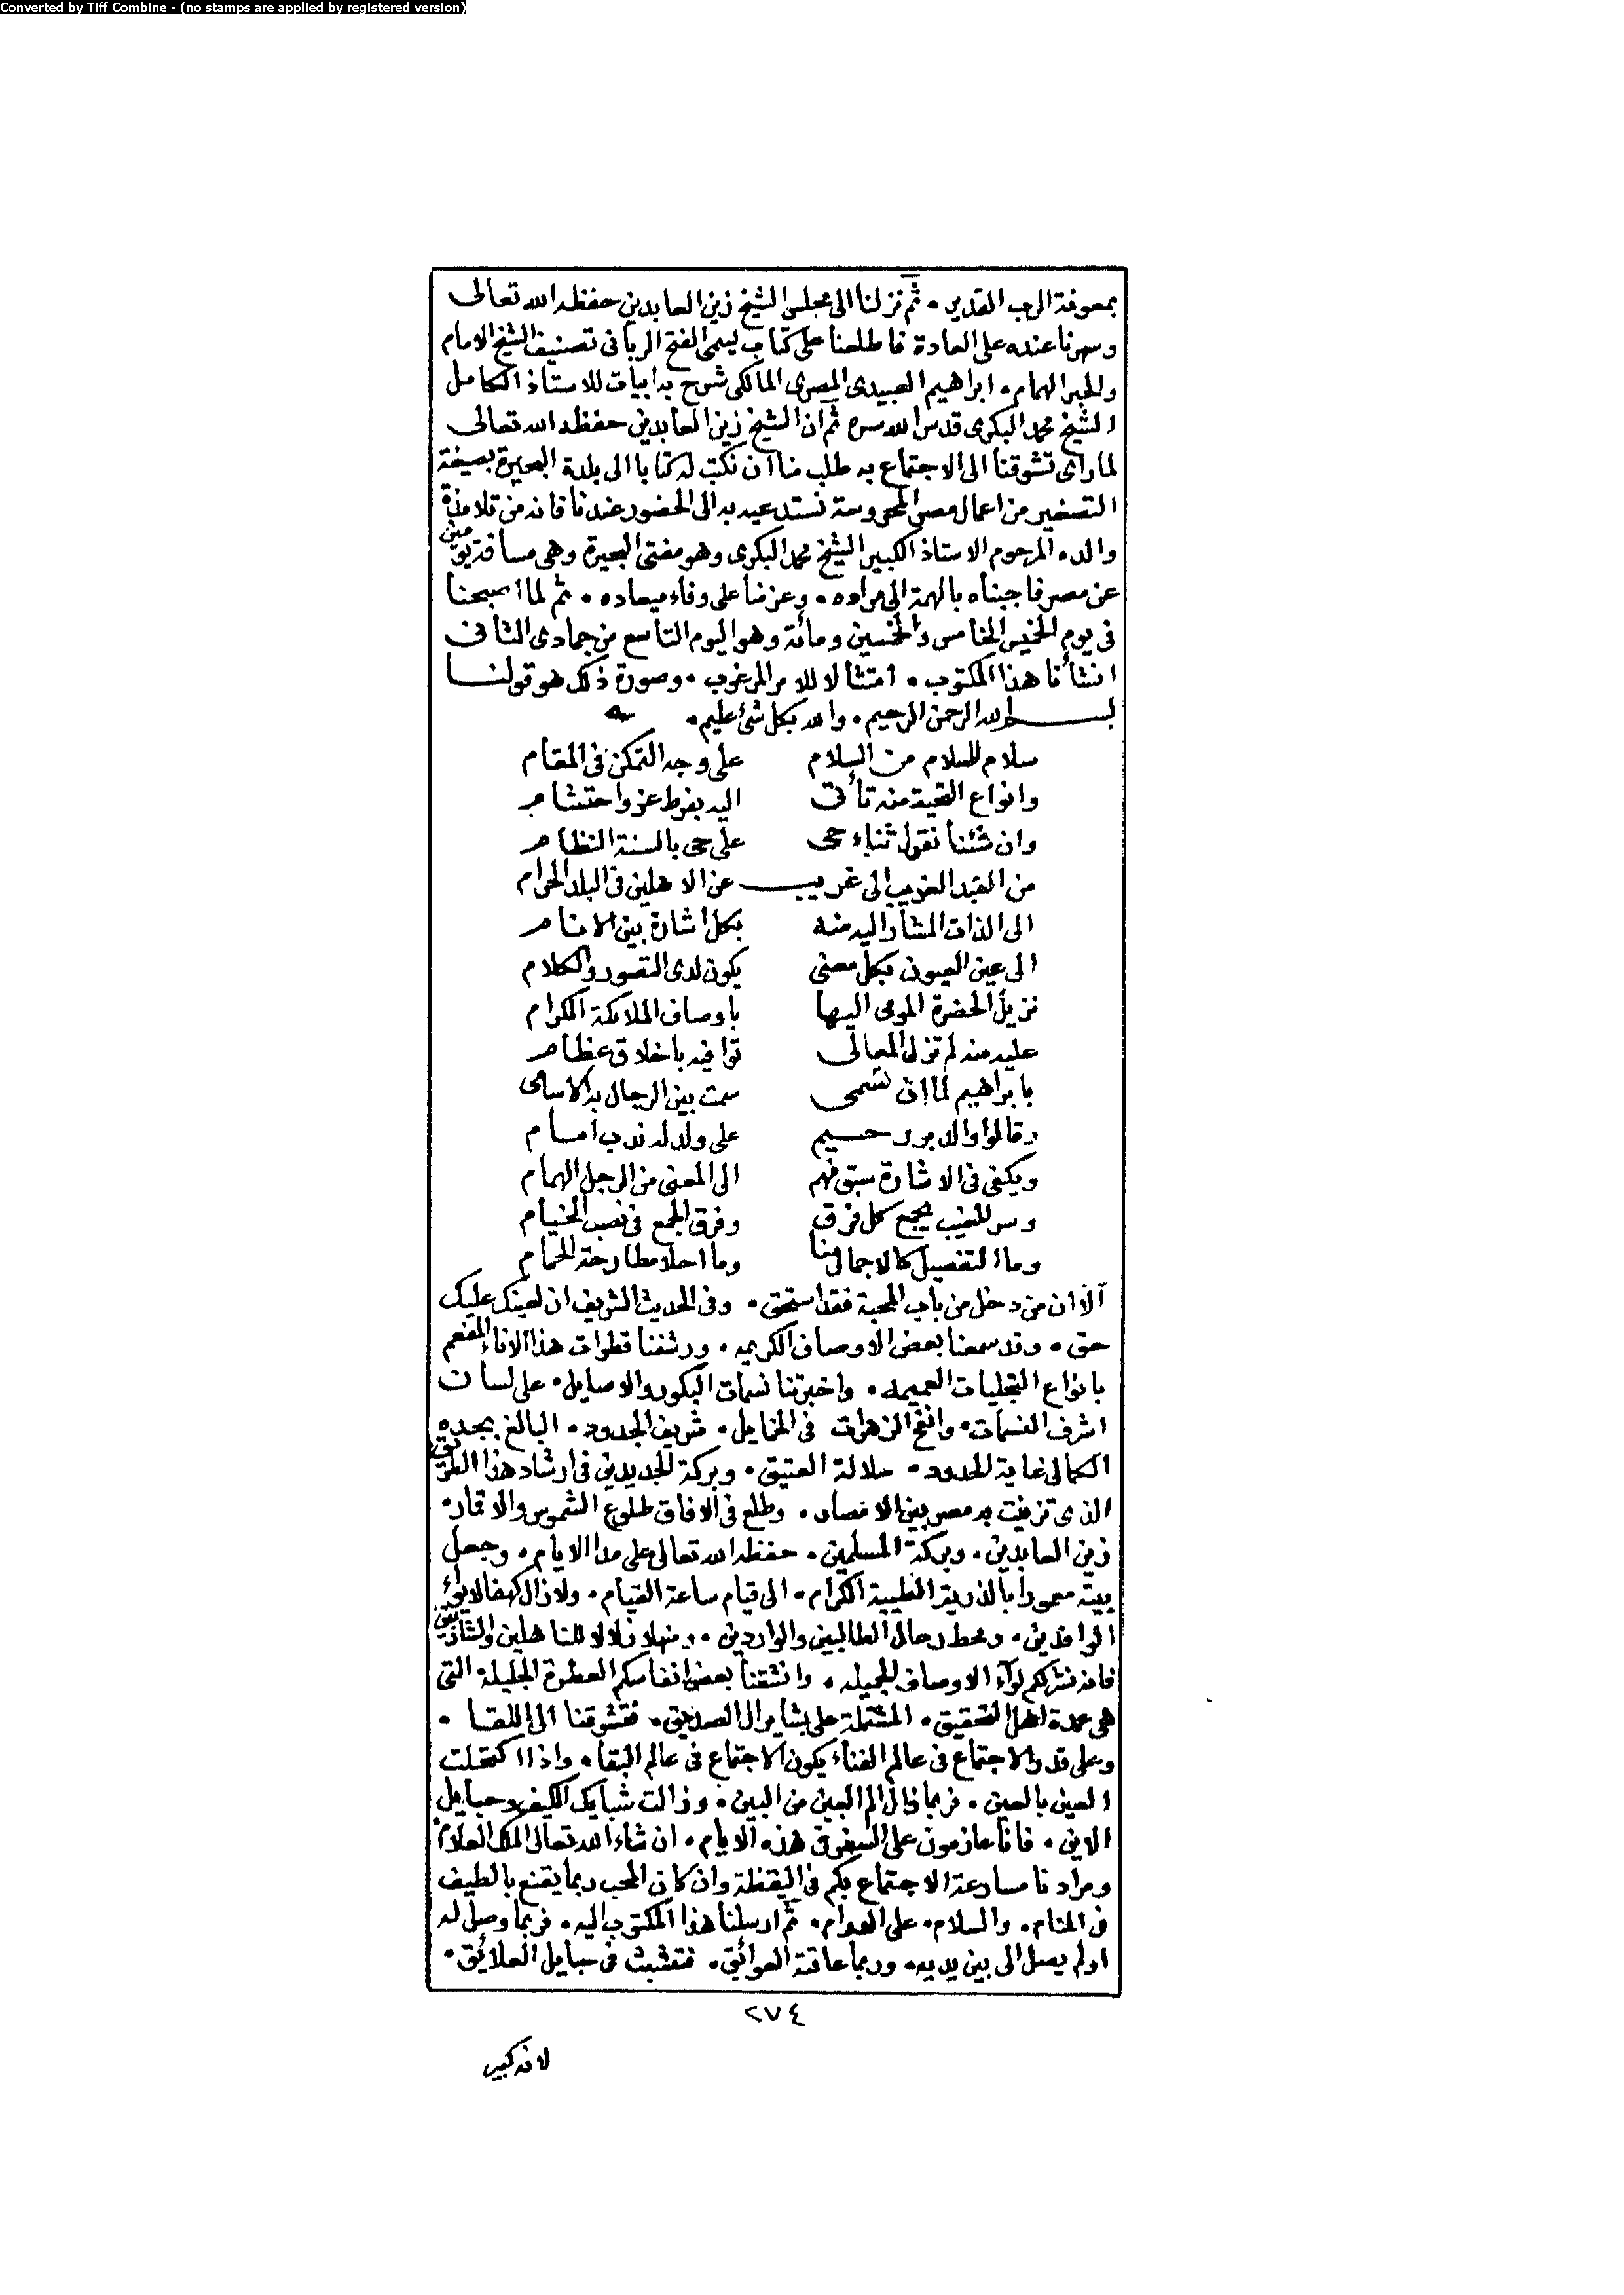 Converted by Tiff Combine - (no stamps are applied by registered version)
بمعونة الرب القدير . ثم نزلنا الى مجلس الشيخ زين العابدين حفظه الله تعالى
وسهرنا عنده على العادة فاطلعنا على كتاب يسمى الفتح الرباني تصنيف الشيخ الامام
والحبر الهمام . ابراهيم العبيدي المصرى المالكى شرح به ابيات للاستاذ الكامل
الشيخ محمد البكرى قدس الله سره ثم ان الشيخ زين العابدين حفظه الله تعالى
لما راى تشوقنا الى الاجتماع به طلب منا ان نكتب له كتابا الى بلدة البحيرة بصيغة
التصغير من اعمال مصر المحروسة نستدعيه به الى الحضور عندنا فانه من تلامذة
والده المرحوم الاستاذ الكبير الشيخ محمد البكرى وهو مفتى البحيرة وهى مسافة يومين
عن مصر فاجبناه بالهمة الى مراده . وعزمنا على وفاء ميعاده . ثم لما اصبحنا
فى يوم الخميس الخامس والخمسين ومائة وهو اليوم التاسع من جمادى الثانى
انشأنا هذا المكتوب . امتثالا للامر المرغوب . وصورة ذلك هو قولنا
بسم الله الرحمن الرحيم . والله بكل شئ عليم .
سلام للسلام من السلام على وجه التمكن فى المقام
وانواع التحية منه تأتى اليه بفرط عز واحتشام
وان شئنا نقول ثناء حى على حى بالسنة النظام
من العبد الغريب الى غريب عن الاهلين فى البلد الحرام
الى الذات المشار اليه منه بكل اشارة بين الانام
الى عين العيون بكل معنى يكون لدى التصور والكلام
نزيل الحضرة المومى اليها باوصاف الملائكة الكرام
عليه منه لم تزل المعالى توافيه باخلاق عظام
بابراهيم لما ان تسمى سمت بين الرجال به الاسامى
وقالوا والد بر رحيم على ولد له ندب امام
ويكفى فى الاشارة سبق فهم الى المعنى من الرجل الهمام
وسر الغيب يجمع كل فرق وفرق الجمع فى نصب الخيام
وما التفصيل كالاجمال منا وما احلا مطارحة الحمام
الا ان من دخل من باب المحبة فقد استحق . وفى الحديث الشريف ان لعينك عليك
حق . وقد سمعنا بعض الاوصاف الكريمه . ورشفنا قطرات هذا الاناء المفعم
بانواع التجليات العميمه . واخبرتنا نسمات البكور والاصايل . على لسان
اشرف النسمات . وانفح الزهرات فى الخمايل . شريف الجدود . البالغ بجده
الكمالى غاية الحدود . سلالة العتيق . وبركة الجديدين فى ارشاد هذا الطريق
الذى تزينت به مصر بين الامصار . وطلع فى الافاق طلوع الشموس والاقمار .
زين العابدين . وبركة المسلمين . حفظه الله تعالى على مدا الايام . وجعل
بيته معمورا بالذرية الطيبة الكرام . الى قيام ساعة القيام . ولا زال كهفا لايواء
الوافدين . ومحط رحال الطالبين والواردين . ومنهلا زلالا للناهلين والشاربين
فانه نشر لكم لواء الاوصاف الجميله . وانشقنا بعض انفاسكم العطرة الجليلة التى
هى عمدة اهل التحقيق . المشتملة على بشاير ال الصديق . فتشوقنا الى اللقا .
وعلى قدر الاجتماع فى عالم الفناء يكون الاجتماع فى عالم البقا . واذا اكتحلت
العين بالعين . فربما زال الم البين من البين . وزالت شبايك الكيف وحبايل
الاين . فانا عازمون على السفر فى هذه الايام . ان شاء الله تعالى الملك العلام
ومرادنا مسارعة الاجتماع بكم فى اليقظة وان كان المحب ربما يقنع بالطيف
فى المنام . والسلام . على الدوام . ثم ارسلنا هذا المكتوب اليه . فربما وصل له
اولم يصل الى بين يديه . وربما عاقته العوائق . فتشبث فى حبايل العلائق .
٢٧٤
لانه كبير